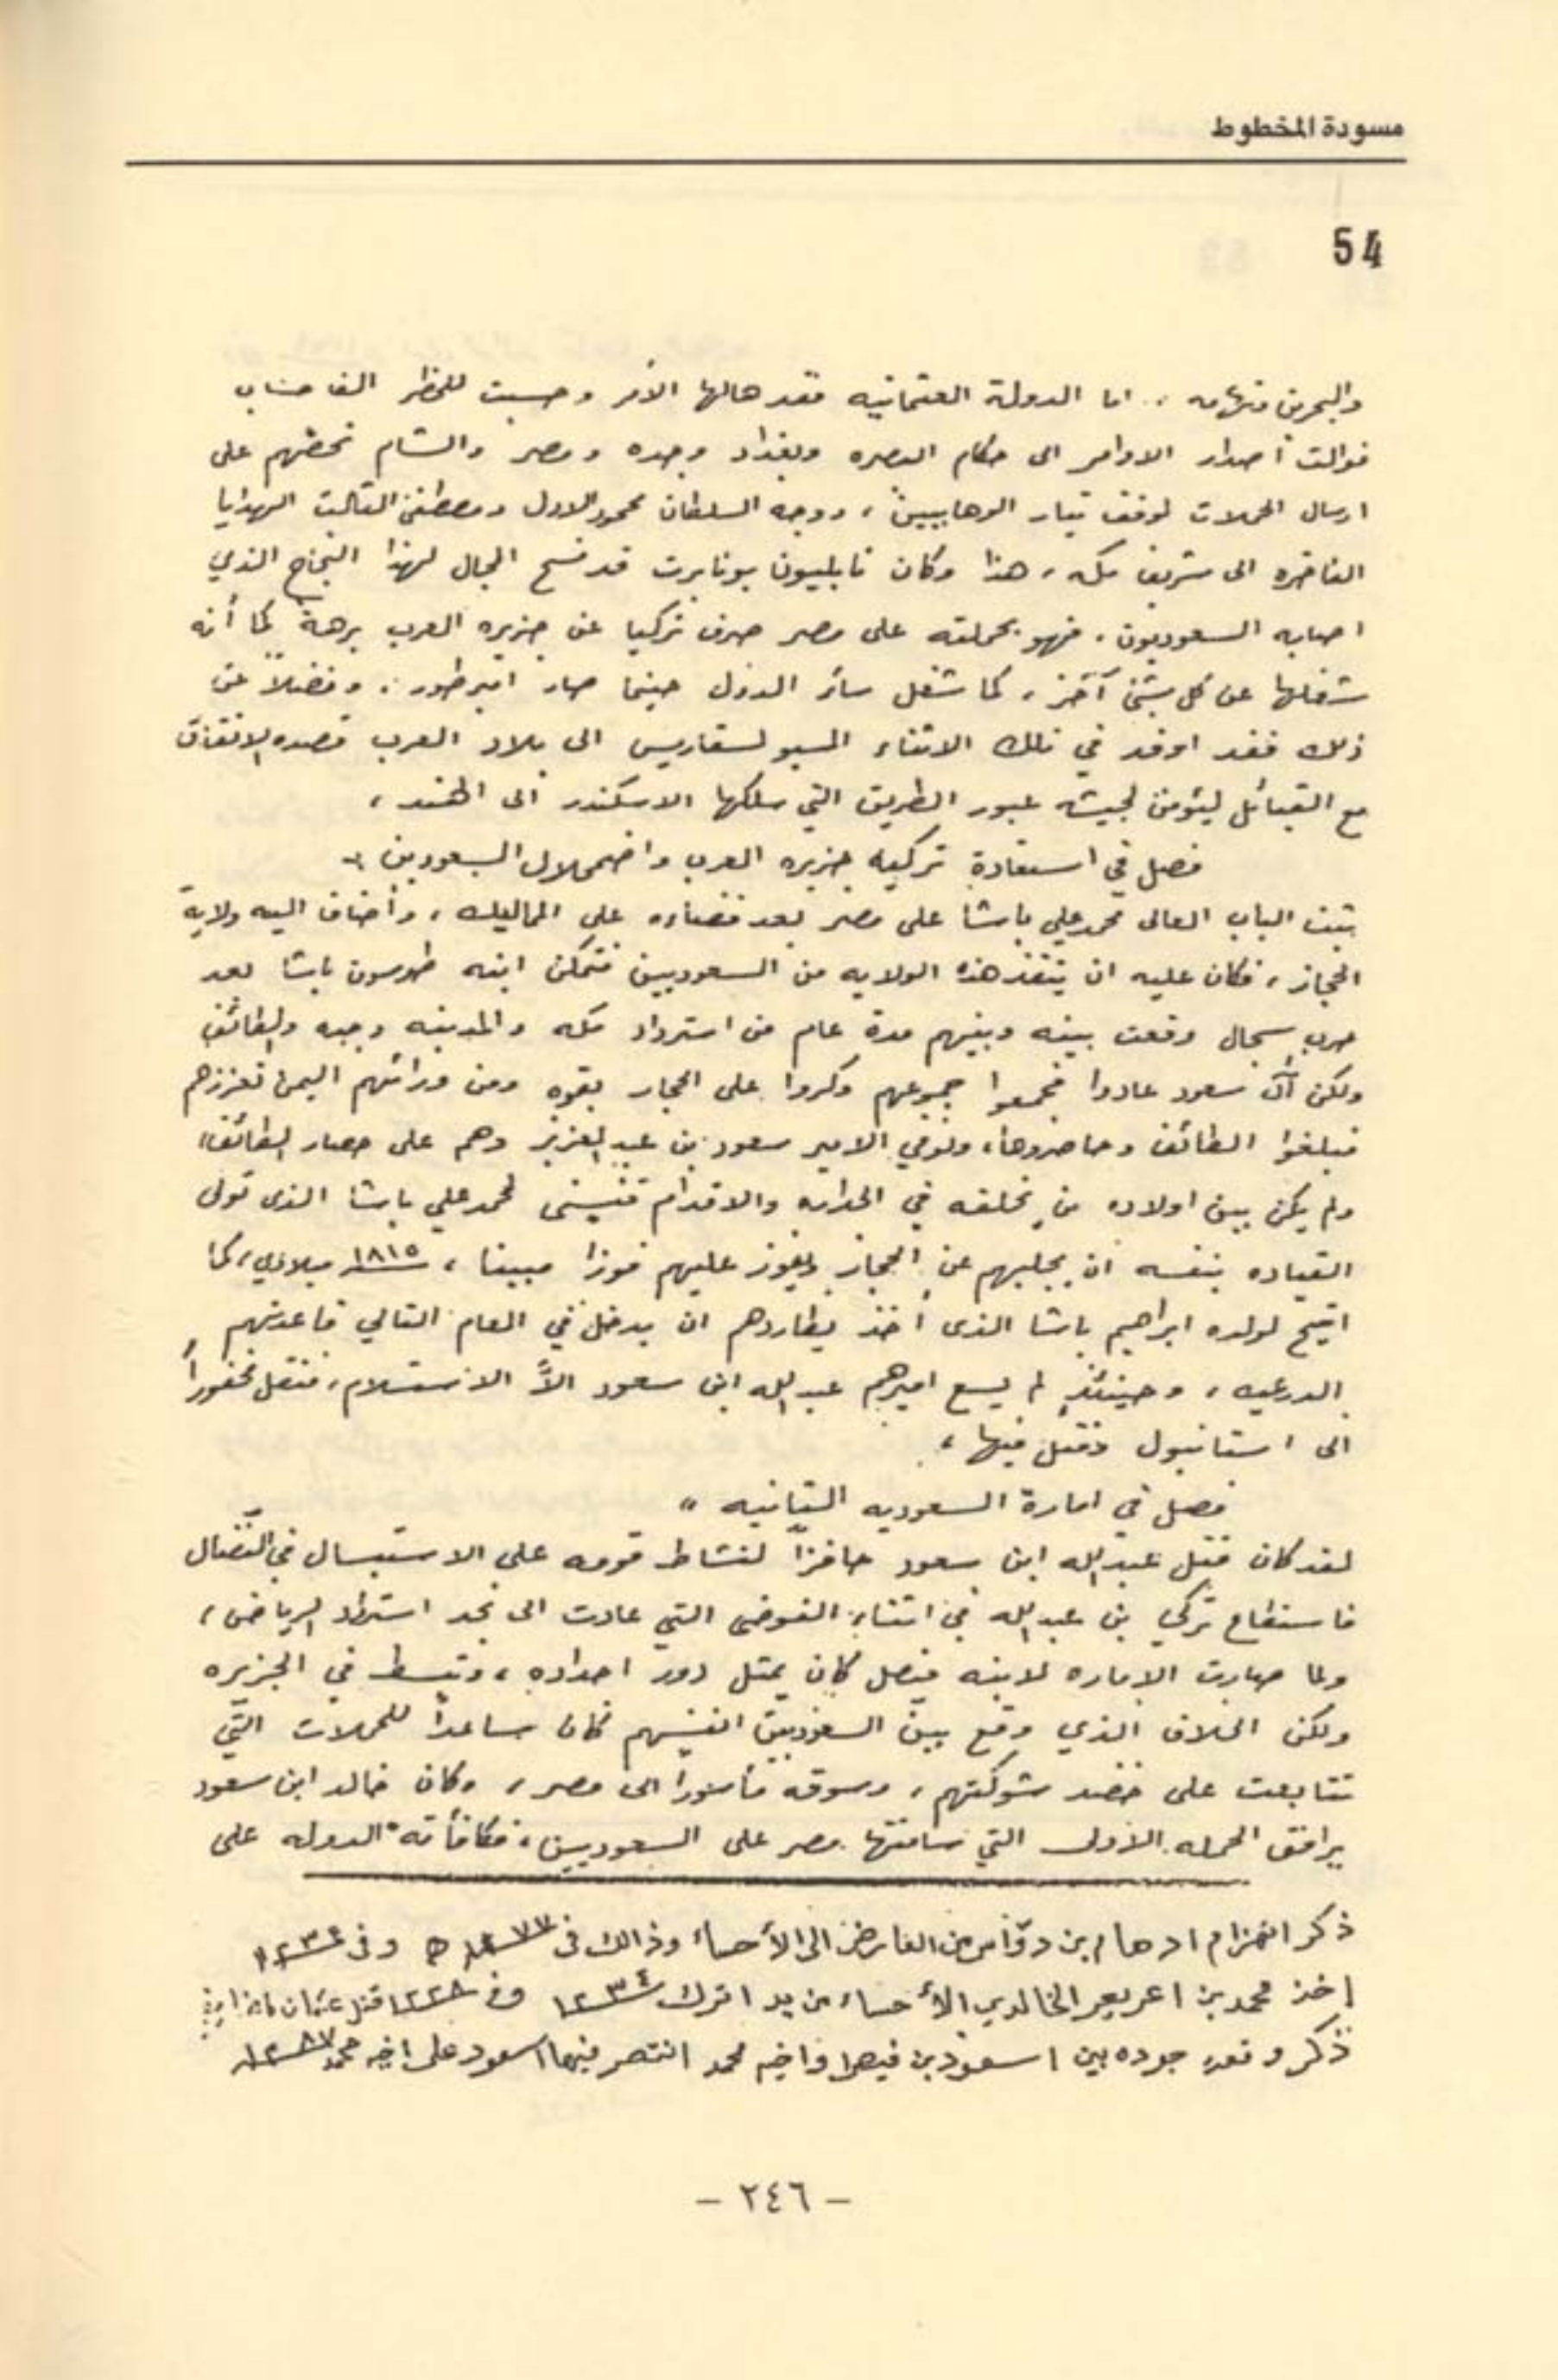 مسودة المخطوط
54
والبحرين وتهامه ، اما الدولة العثمانيه فقد هالها الأمر وحسبت للخطر الف حساب
فوالت أصدار الاوامر الى حكام البصره وبغداد وجده ومصر والشام تحضهم على
ارسال الحملات لوقف تيار الوهابيين ، ووجه السلطان محمود الاول ومصطفى الثالث الهدايا
الفاخره الى شريف مكه ، هذا وكان نابليون بونابرت قد فسح المجال لهذا النجاح الذي
اصابه السعوديون ، فهو بحملته على مصر صرف تركيا عن جزيره العرب برهة كما أنه
شغلها عن كل شئ آخر ، كما شغل سائر الدول حينما صار امبرطور . وفضلاً عن
ذلك فقد اوفد في تلك الاثناء المسيو لسقاريس الى بلاد العرب قصده الاتفاق
مع القبائل ليؤمن لجيشه عبور الطريق التي سلكها الاسكندر الى الهند ،
فصل في استعادة تركيه جزيره العرب واضمحلال السعودين
ثبت الباب العالى محمد علي باشا على مصر بعد قضاءه على المماليك ، وأضاف اليه ولاية
الحجاز ، فكان عليه ان ينقذ هذه الولايه من السعوديين فتمكن ابنه طوسون باشا بعد
حرب سجال وقعت بينه وبينهم مدة عام من استرداد مكه والمدينه وجده والطائف
ولكن آل سعود عادوا فجمعوا جموعهم وكروا على الحجاز بقوه ومن ورائهم اليمن تعززهم
فبلغوا الطائف وحاصروها ، وتوفي الامير سعود بن عبد العزيز وهم على حصار الطائف ،
ولم يكن بين اولاده من يخلفه في الجدارة والاقدام فتيسنى لمحمد علي باشا الذى تولى
القياده بنفسه ان يجليهم عن الحجاز ويفوز عليهم فوزا مبينا ، سنة ١٨١٥ ميلادي ، كما
اتيح لولده ابراهيم باشا الذى أخذ يطاردهم ان يدخل في العام التالي قاعدتهم
الدرعيه ، وحينئذٍ لم يسع اميرهم عبد الله ابن سعود الاَّ الاستسلام ، فنقل مخفوراً
الى استانبول وقتل فيها ،
فصل في امارة السعوديه الثانيه
لقد كان قتل عبد الله ابن سعود حافزاً لنشاط قومه على الاستبسال في النضال
فاستطاع تركي بن عبد الله في اثناء الفوضى التي عادت الى نجد استرداد الرياض ،
ولما صارت الاماره لابنه فيصل كان يمثل دور اجداده ، وتبسط في الجزيره
ولكن الخلاف الذي وقع بين السعوديين انفسهم كان مساعداً للحملات التي
تتابعت على خضد شوكتهم ، وسوقه مأسورا الى مصر ، وكان خالد ابن سعود
يرافق الحمله الاولى التي ساقتها مصر على السعوديين ، فكافأته الدوله على
ذكر انهزام ادهام بن دوّاس من العارض الى الأحساء وذالك في ه وفي
إخذ محمد بن اعريعر الخالدي الأحساء من يد اترك ١٢٣٤ وفي قتل عثمان
ذكر وقعة جوده بين اسعود بن فيصل واخيه محمد انتصر فيها اسعود على اخيه محمد ١٢٨٧
- ٢٤٦ -